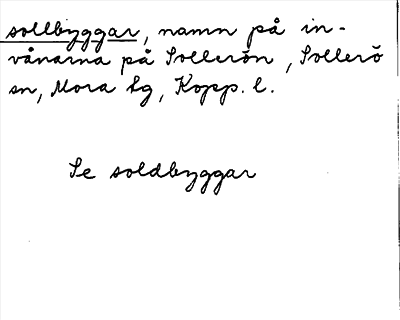 sollbyggar, namn på in-
vånarna på Sollerön, Sollerö
sn, Mora lg, Kopp. l.
Se soldbyggar